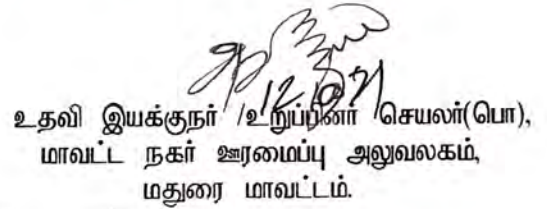 உதவி இயக்குநர் /உறுப்பினர் செயலர்(பொ),
மாவட்ட நகர் ஊரமைப்பு அலுவலகம்,
மதுரை மாவட்டம்.